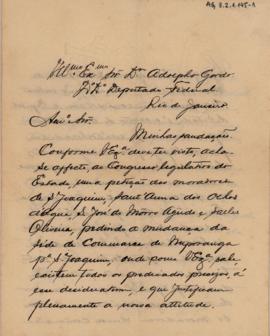 AG 3.2.1.145-1
Ill.mo Ex.mo Snr. Dr. Adolpho Gordo
D.D. Deputado Federal
Rio de Janeiro
Am.o Snr.
Minhas saudações.
Conforme V Ex.a deve ter visto, acha-
se affecta, ao Congresso legislativo do
Estado uma petição dos moradores
de S. Joaquim, Sant'Anna dos Olhos
d'Agua, S. José do Morro Agudo e Salles
Oliveira, pedindo a mudança da
séde da Comarca de Nuporanga
p.a S. Joaquim, onde como V Ex.a sabe
existem todos os predicados precisos á
esse desideratum, e que justificam
plenamente a nova attitude.